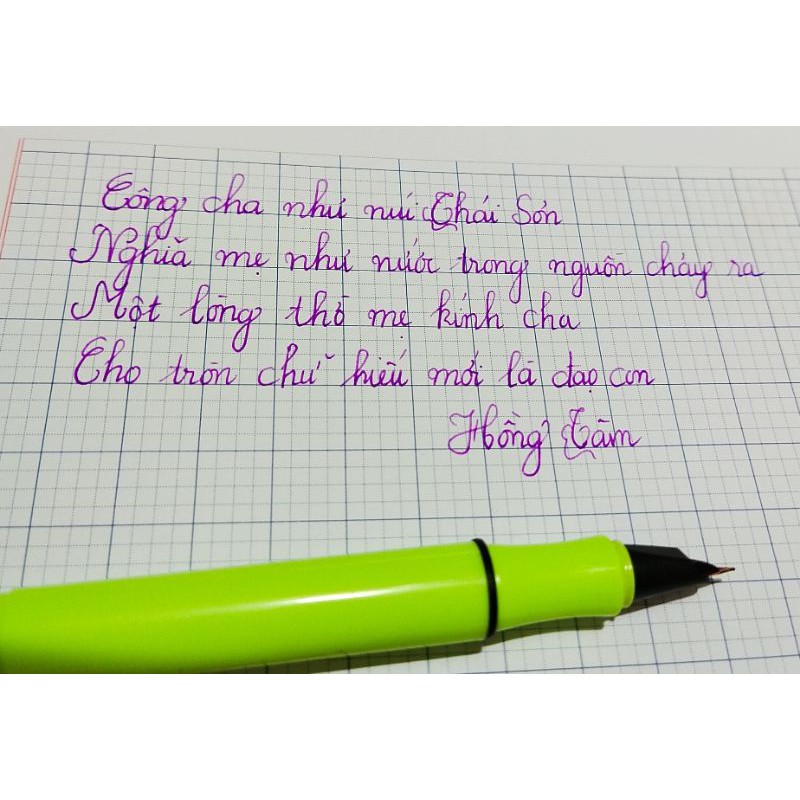 Công cha như núi Thái Sơn
Nghĩa mẹ như nước trong nguồn chảy ra
Một lòng thờ mẹ kính cha
Cho tròn chữ hiếu mới là đạo con
Hồng Cẩm